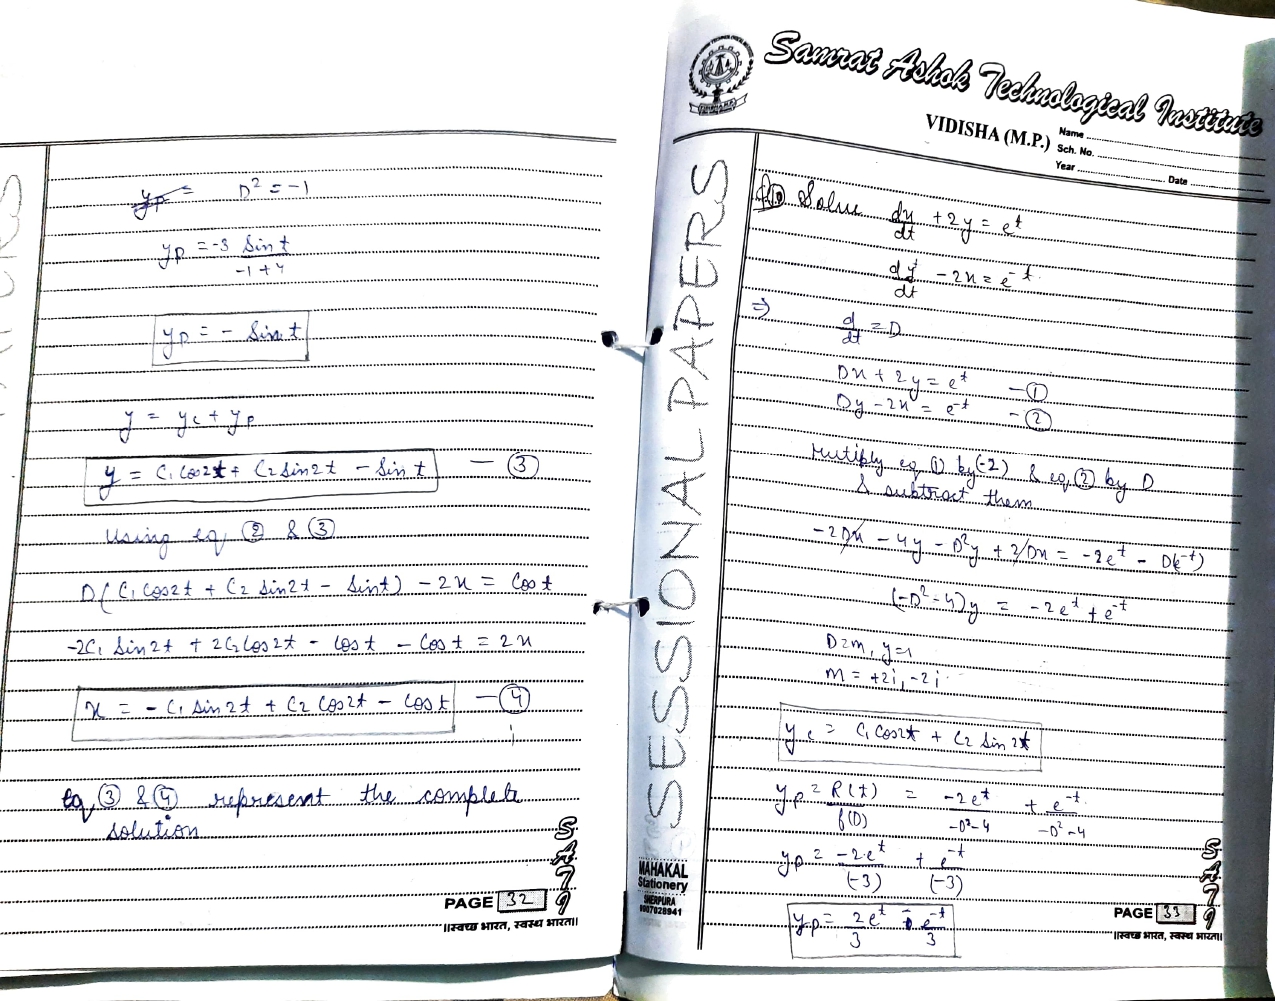 D² = -1
yp = -3 Sin t / -1+4
yp = - Sin t
y = yc + yp
y = C1 Cos2t + C2 Sin2t - Sin t — ③
Using eq ② & ③
D(C1 Cos2t + C2 Sin2t - Sint) - 2x = Cos t
-2C1 Sin2t + 2C2 Cos2t - Cos t - Cos t = 2x
x = - C1 Sin2t + C2 Cos2t - Cos t — ④
eq ③ & ④ represent the complete
solution
SATI
PAGE 32
॥स्वच्छ भारत, स्वस्थ भारत॥
SESSIONAL PAPERS
MAHAKAL
Stationery
SHERPURA
9007028941
Samrat Ashok Technological Institute
VIDISHA (M.P.)
Name
Sch. No.
Year
Date
Solve dx/dt + 2y = e^t
dy/dt - 2x = e^-t
⇒ d/dt = D
Dx + 2y = e^t — ①
Dy - 2x = e^-t - ②
Multiply eq ① by (-2) & eq ② by D
& subtract them
-2Dx - 4y - D²y + 2Dx = -2e^t - D(e^-t)
(-D²-4)y = -2e^t + e^-t
D=m, y=1
m = +2i, -2i
yc = C1 Cos2t + C2 Sin 2t
yp = R(t)/f(D) = -2e^t/-D²-4 + e^-t/-D²-4
yp = -2e^t/(-3) + e^-t/(-3)
yp = 2e^t/3 - e^-t/3
SATI
PAGE 33
॥स्वच्छ भारत, स्वस्थ भारत॥